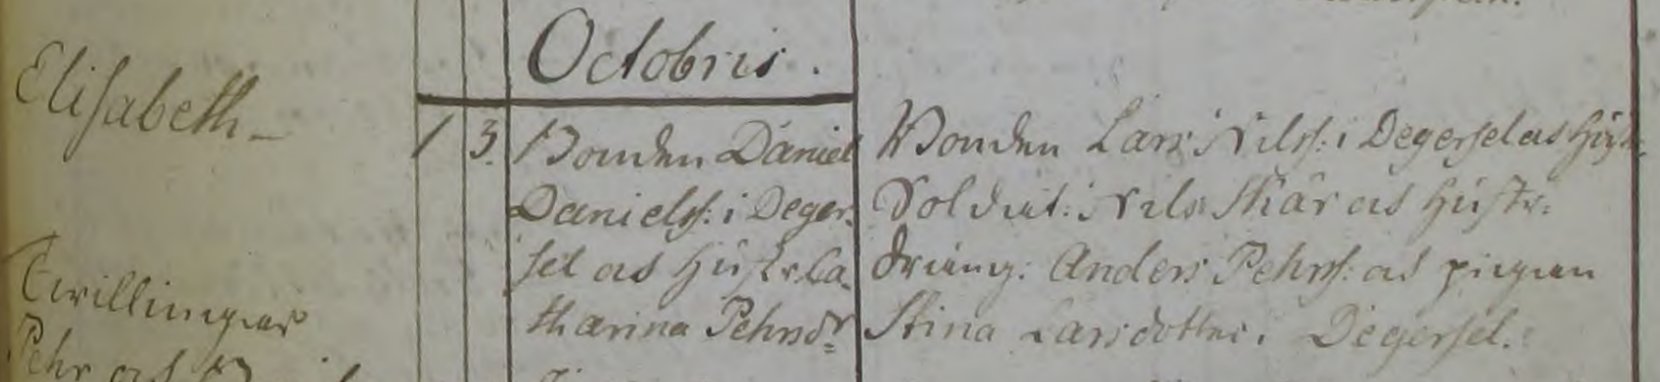 Octobris.
Elisabeth
1 3. Bonden Daniel
Danielss: i Deger-
sel och Hustr. Ca-
tharina Pehrsdr
Bonden Lars Nilss: i Degersel och Hustr:
Soldat: Nils Skär och Hustr:
Dräng: Anders Pehrss: och pigan
Stina Larsdotter i Degersel.
Twillingar
Pehr och